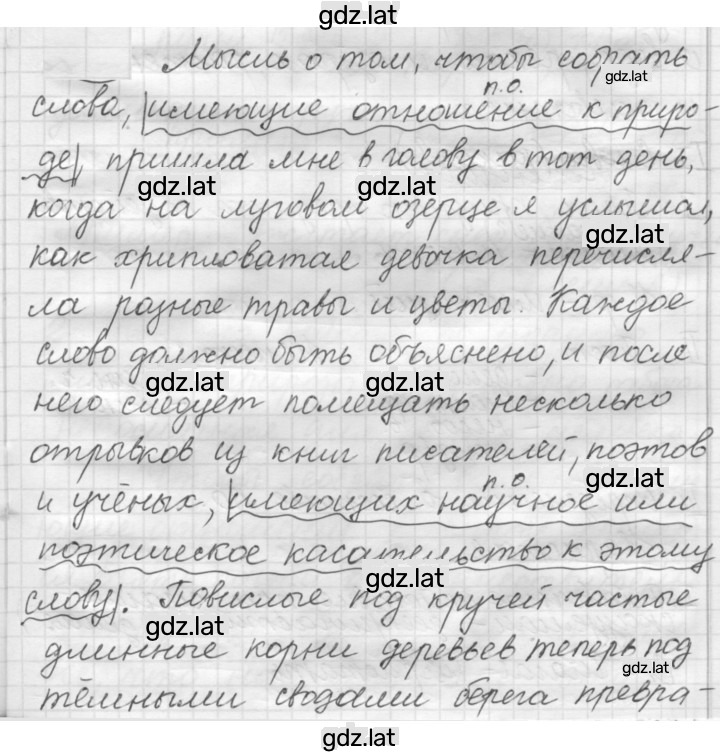 gdz.lat
Мысль о том, чтобы собрать
gdz.lat
п.о.
слова, имеющие отношение к приро-
де, пришла мне в голову в тот день,
gdz.lat gdz.lat
когда на луговом озерце я услышал,
gdz.lat
как хрипловатая девочка перечисля-
ла разные травы и цветы. Каждое
слово должно быть объяснено, и после
gdz.lat gdz.lat
него следует помещать несколько
отрывков из книг писателей, поэтов
gdz.lat
п.о.
и учёных, имеющих научное или
поэтическое касательство к этому
gdz.lat
слову. Повислые под кручей частые
gdz.lat
длинные корни деревьев теперь под
gdz.lat
тёмными сводами берега превра-
gdz.lat